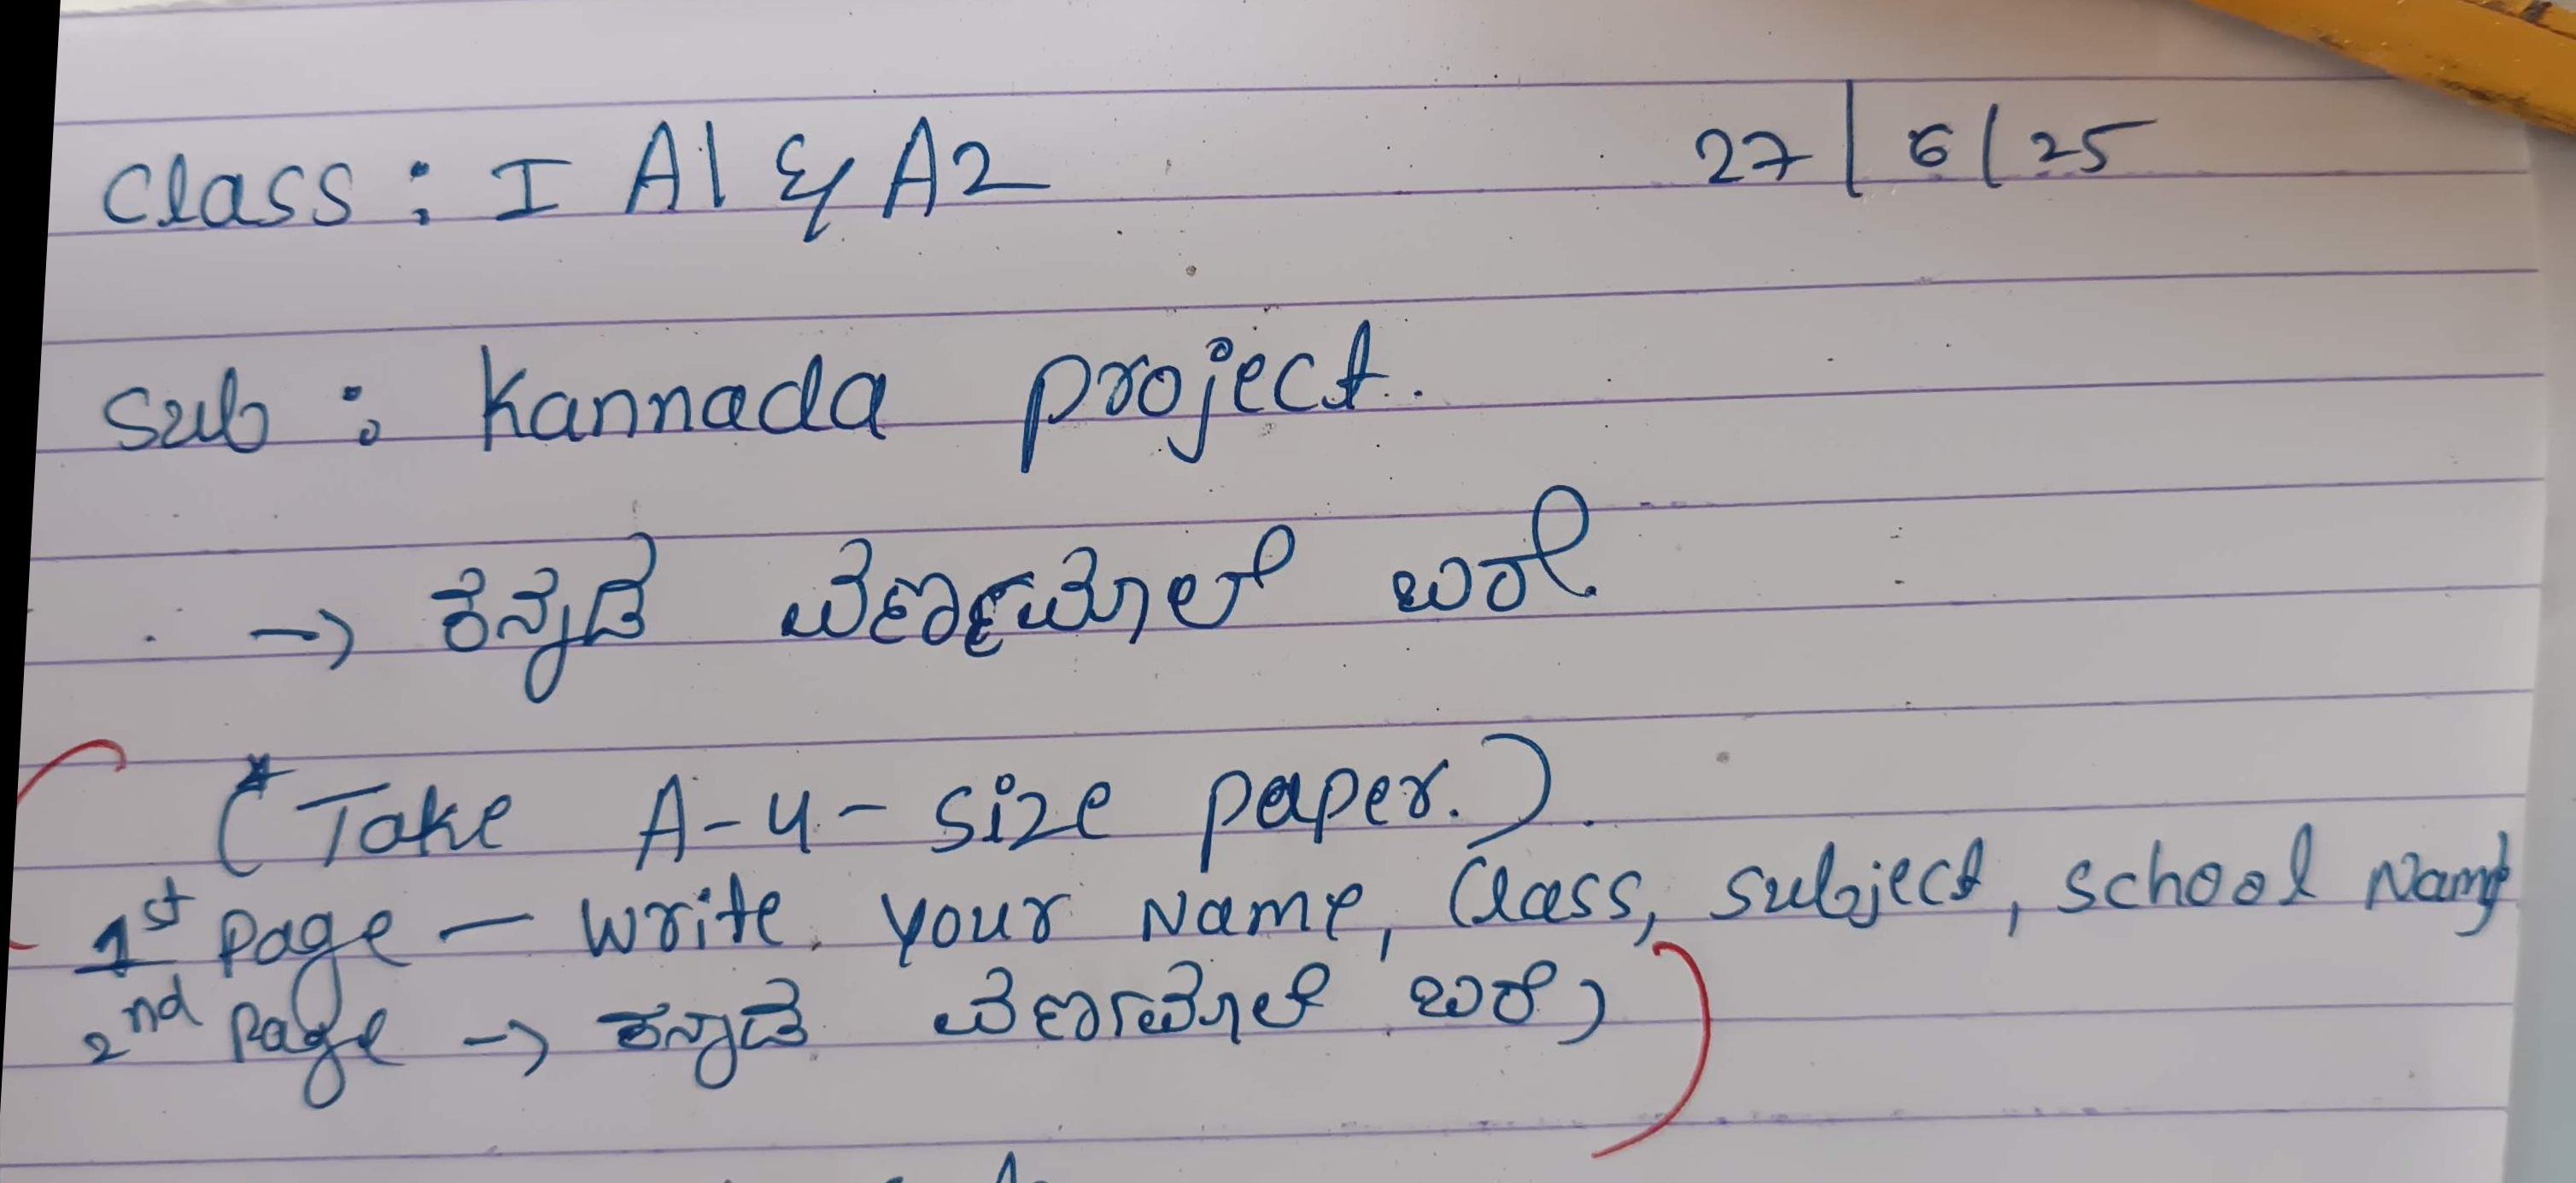 Class : I A1 & A2 27/6/25
Sub : Kannada project.
→ ಕನ್ನಡ ವರ್ಣಮಾಲೆ ಬರೆ.
(* Take A-4-size paper.).
1st page — write your Name, Class, subject, school Name
2nd page → ಕನ್ನಡ ವರ್ಣಮಾಲೆ ಬರೆ)